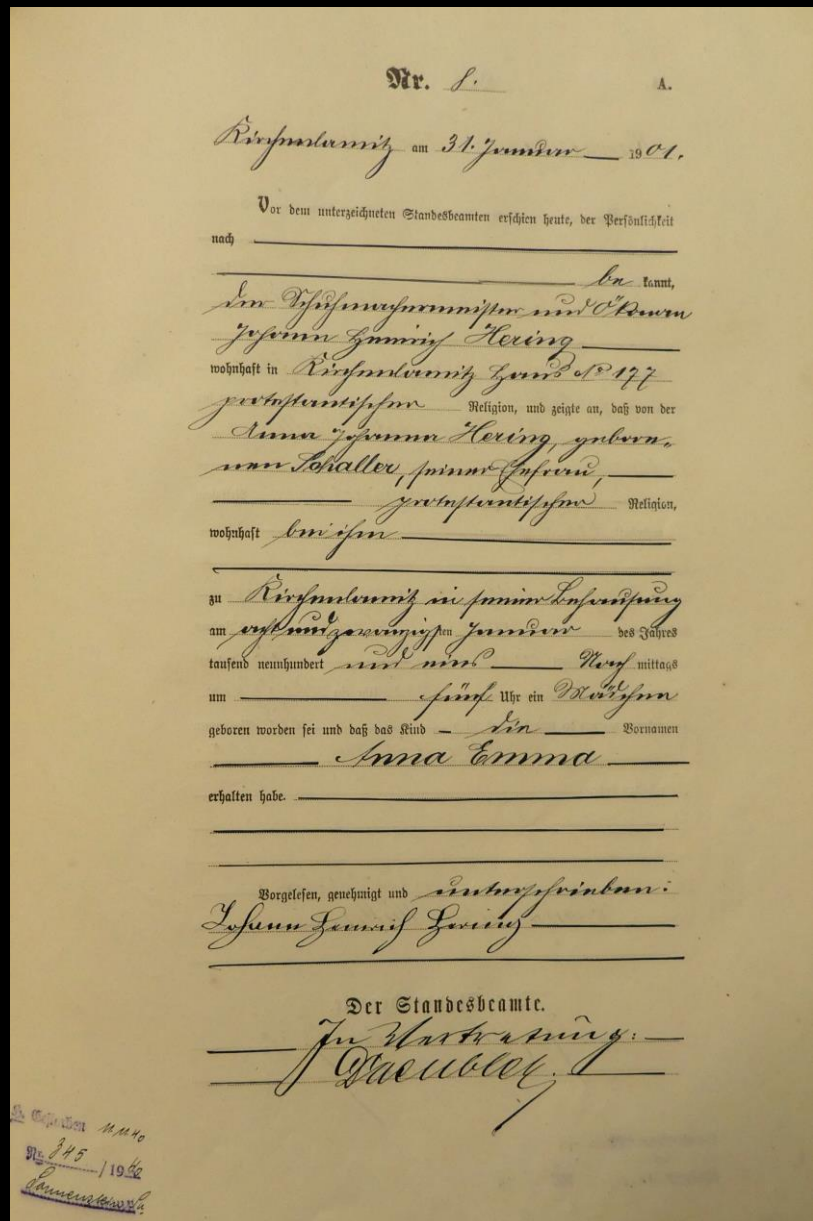 Nr. 8. A.
Kirchenlamitz am 31. Januar 1901.
Vor dem unterzeichneten Standesbeamten erschien heute, der Persönlichkeit
nach
be kannt,
der Schuhmachermeister und Ökonom
Johann Heinrich Hering
wohnhaft in Kirchenlamitz Haus No 177
protestantischer Religion, und zeigte an, daß von der
Anna Johanna Hering, gebore-
nen Schaller, seiner Ehefrau,
protestantischer Religion,
wohnhaft bei ihm
zu Kirchenlamitz in seiner Behausung
am acht und zwanzigsten Januar des Jahres
tausend neunhundert und eins Nach mittags
um fünf Uhr ein Mädchen
geboren worden sei und daß das Kind die Vornamen
Anna Emma
erhalten habe.
Vorgelesen, genehmigt und unterschrieben:
Johann Heinrich Hering
Der Standesbeamte.
In Vertretung:
Gestorben
Nr. 345 /1940